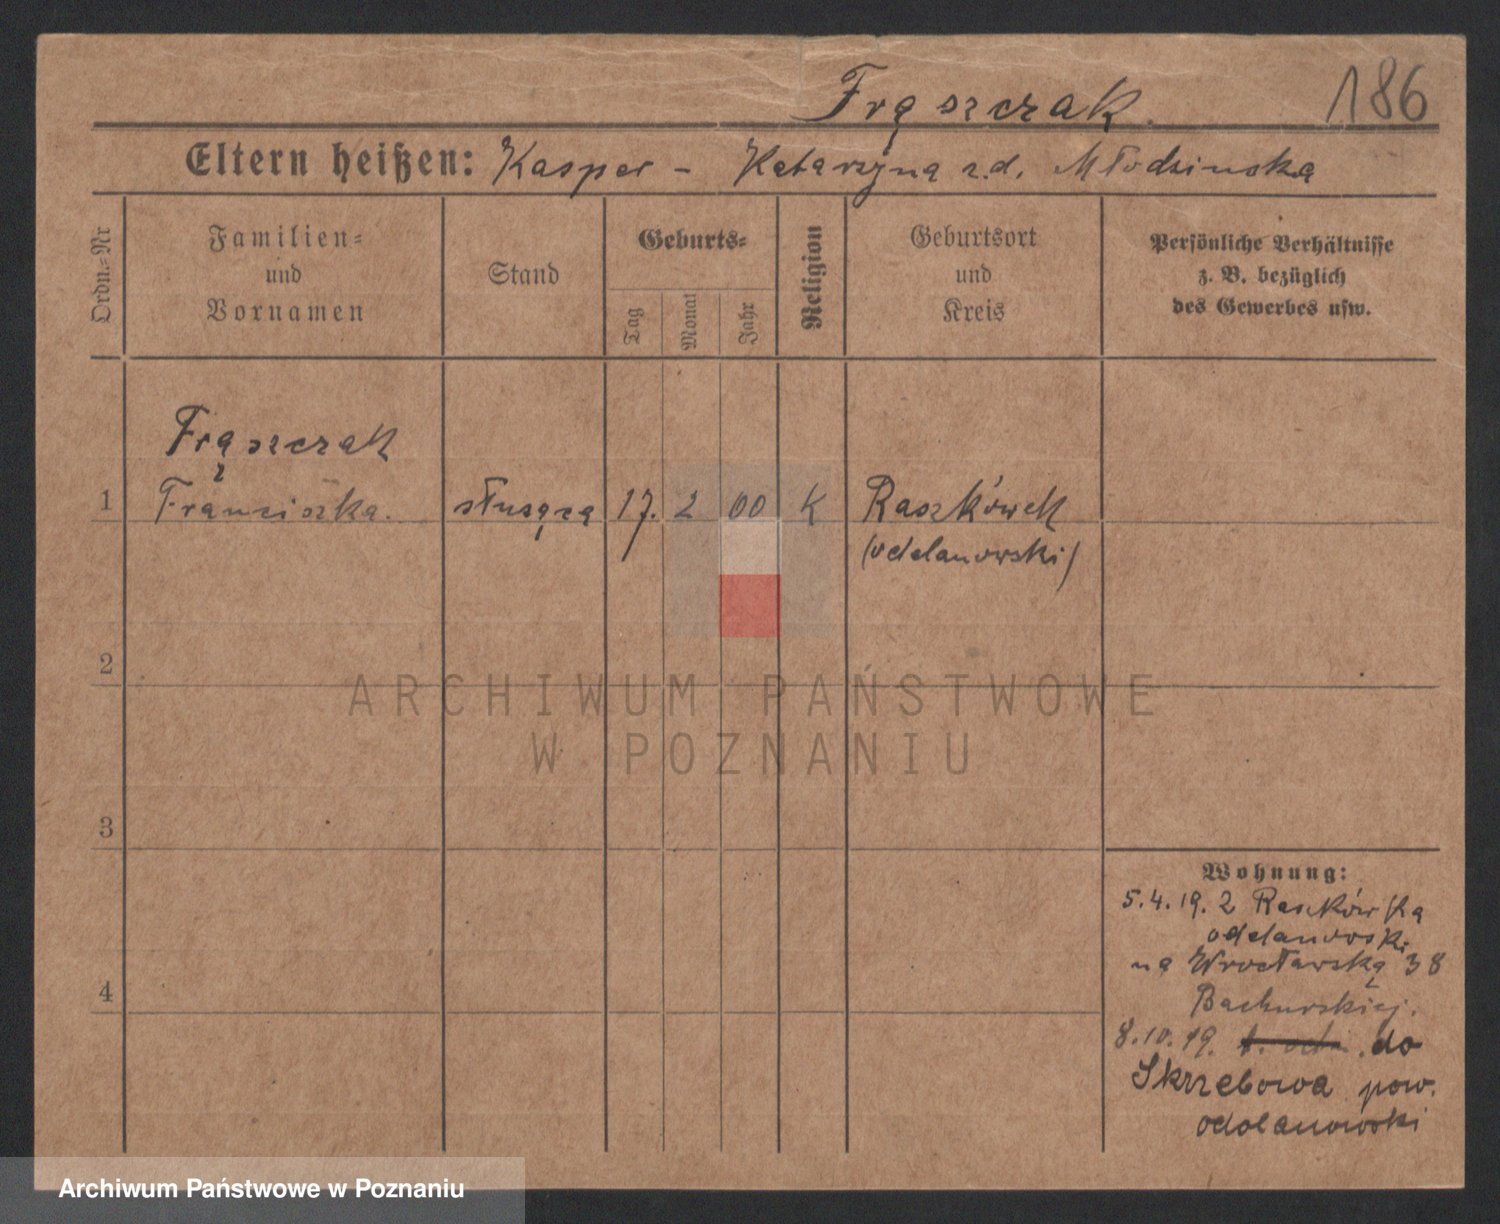 Frąszczak
186
Eltern heißen: Kasper – Katarzyna z.d. Młodzinska
Ordn.-Nr
Familien-
und
Vornamen
Stand
Geburts-
Tag
Monat
Jahr
Religion
Geburtsort
und
Kreis
Persönliche Verhältnisse
z. B. bezüglich
des Gewerbes usw.
Frąszczak
1 Franciszka. służąca 17. 2 00 K Raszkówek
(odolanowski)
2
ARCHIWUM PAŃSTWOWE
W POZNANIU
3
4
Wohnung:
5.4.19. z Raszkówka
odolanowski
na Wrocławską 38
z Bachurskiej.
8.10.19. do
Skrzebowa pow.
odolanowski
Archiwum Państwowe w Poznaniu